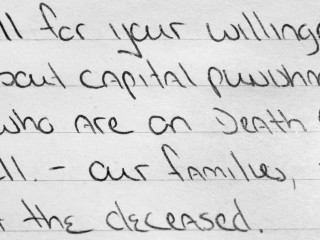 ll for your willing
out capital punishm
who are on Death
ll. - our families,
the deceased.